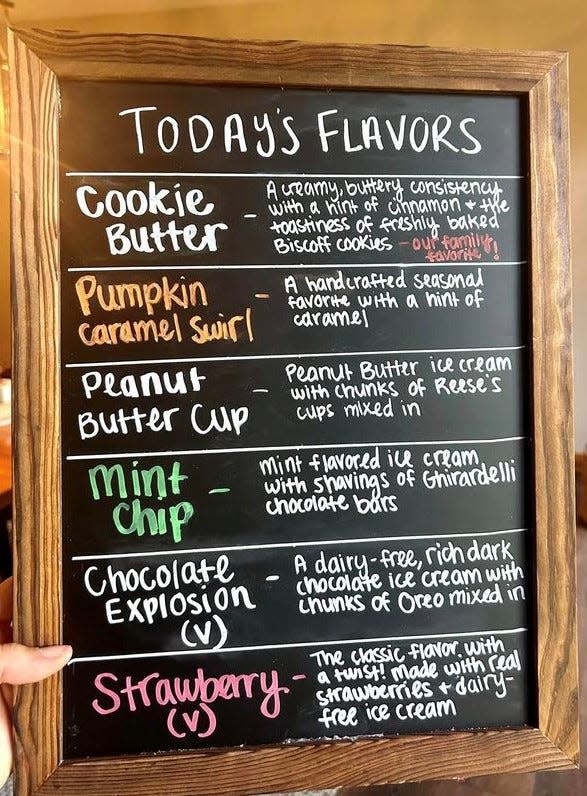 TODAY'S FLAVORS
Cookie
Butter
- A creamy, buttery consistency
with a hint of cinnamon + the
toastiness of freshly baked
Biscoff cookies - our family
favorite!
Pumpkin
caramel swirl
- A handcrafted seasonal
favorite with a hint of
caramel
Peanut
Butter Cup
- Peanut Butter ice cream
with chunks of Reese's
cups mixed in
Mint
Chip
- Mint flavored ice cream
with shavings of Ghirardelli
chocolate bars
Chocolate
EXPLOSION
(V)
- A dairy-free, rich dark
chocolate ice cream with
chunks of Oreo mixed in
Strawberry
(V)
- The classic flavor, with
a twist! made with real
strawberries + dairy-
free ice cream